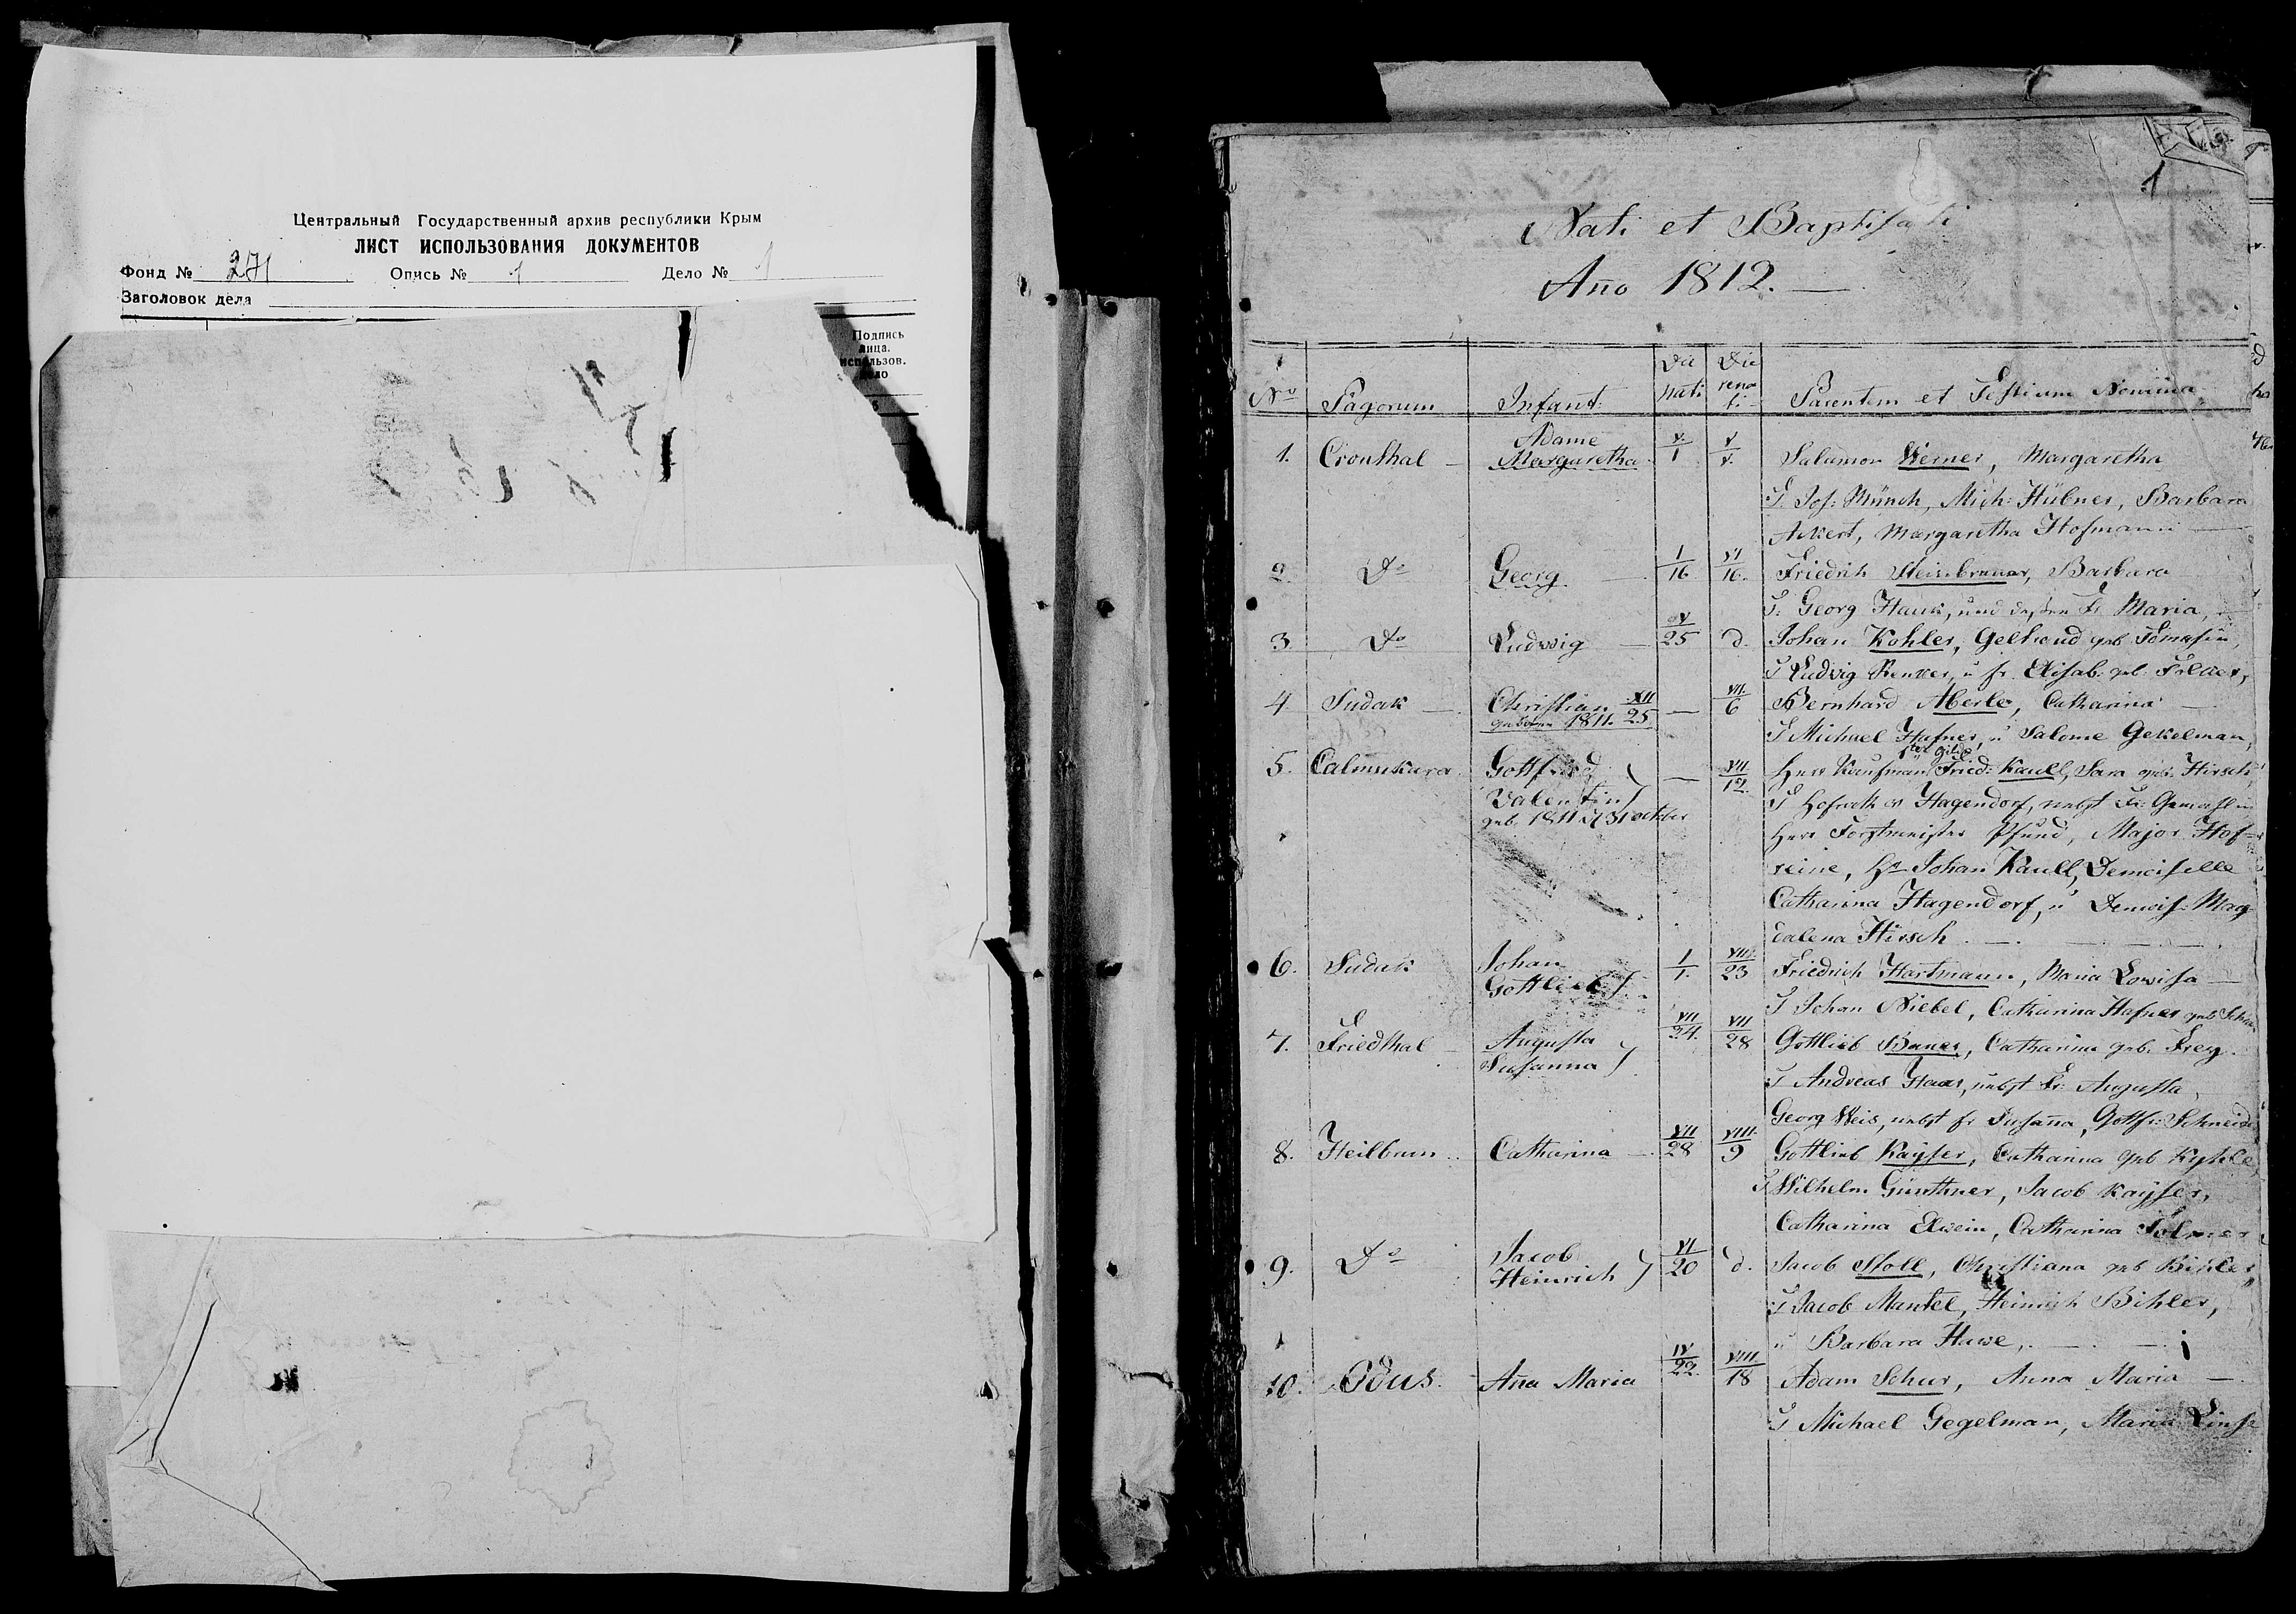 Центральный Государственный архив республики Крым
ЛИСТ ИСПОЛЬЗОВАНИЯ ДОКУМЕНТОВ
Фонд № 271 Опись № 1 Дело № 1
Заголовок дела
Подпись
лица.
использов.
дело
6
1
Nati et Baptisati
Año 1812.
No Pagorum Infant: Die nati Die renati Parentem et Testium Nomina
1. Cronthal Adame Margaretha V/1 V/V. Salamon Werner, Margaretha
T. Jos: Münch, Mich: Hübner, Barbara
Ackert, Margaretha Hofmann
2. Do Georg I/16 VI/16. Friedrich Steinbrunner, Barbara
T: Georg Hauk, und dessen Fr Maria,
3. Do Ludwig V/25 d. Johan Kohler, Geltraud geb
T Ludvig u fr. Elisab: geb.
4. Sudak Christian geboren 1811. XII/25 VII./6 Bernhard Aberle, Catharina
T Michael Hafner, u Salome Gekelman,
5. Calmukara Gottfried Valentin geb. 1811 d 31 october VII/12. Herr Kaufmañ Fried: Kaull, Sara geb. Hirsch
T Hofrath v Hagendorf, nebst Fr: Gemahlin
Herr Forstmeister Pfund, Major Hof-
reine, Hr Johan Kaull, Demoiselle
Catharina Hagendorf, u Demois: Mag
dalena Hirsch
6. Sudak Johan Gottlieb I/1. VIII/23 Friedrich Hartmann, Maria Lowisa
T Johan Niebel, Catharina Hafner geb
7. Friedthal Augusta Susanna VII/24. VII/28 Gottlieb Bauer, Catharina geb. Frey.
T Andreas Haas, nebst Fr: Augusta,
Georg Weis, nebst fr Susaña, Gottfr: Schneid
8. Heilbrun Catharina VII/28 VIII/9 Gottlieb Kayser, Catharina geb
T Wilhelm Günthner, Jacob Kayser,
Catharina Elwein, Catharina
9. Do Jacob Heinrich VI/20 d. Jacob Stoll, Christiana geb Bihler,
T Jacob Mantel, Heinrich Bihler,
u Barbara Hawe,
10. Odus Aña Maria IV/22. VIII/18 Adam Schur, Anna Maria
T Michael Gegelman, Maria